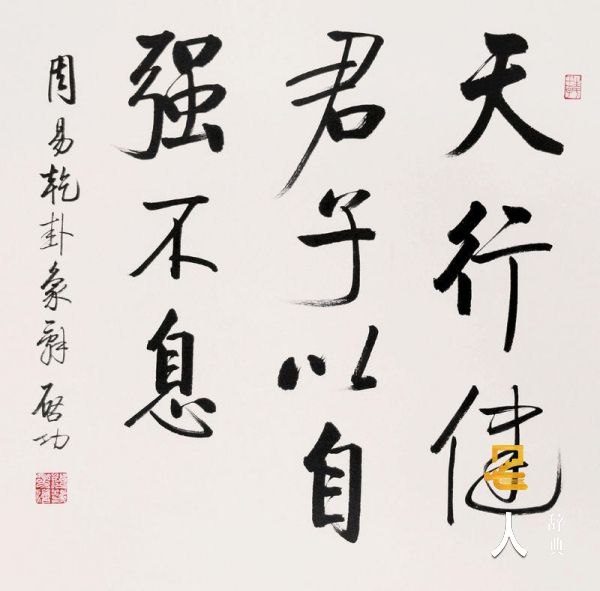 天行健
君子以自
强不息
周易乾卦象辞 启功
名人
辞典